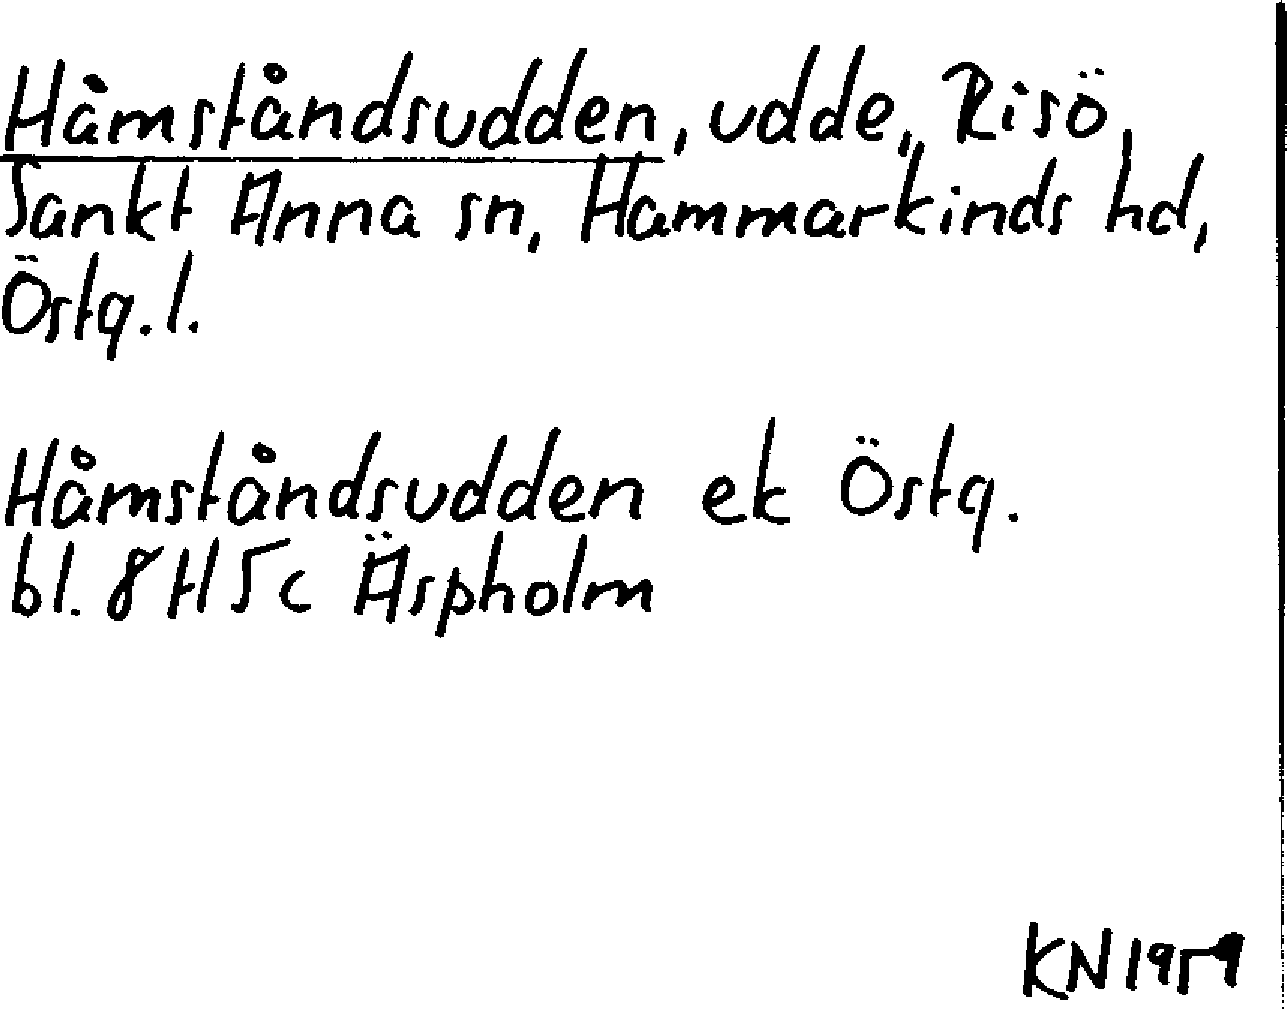 Håmståndsudden, udde, Risö,
Sankt Anna sn, Hammarkinds hd,
Östg. l.
Håmståndsudden ek Östg.
bl. 8H5c Äspholm
KN 1959